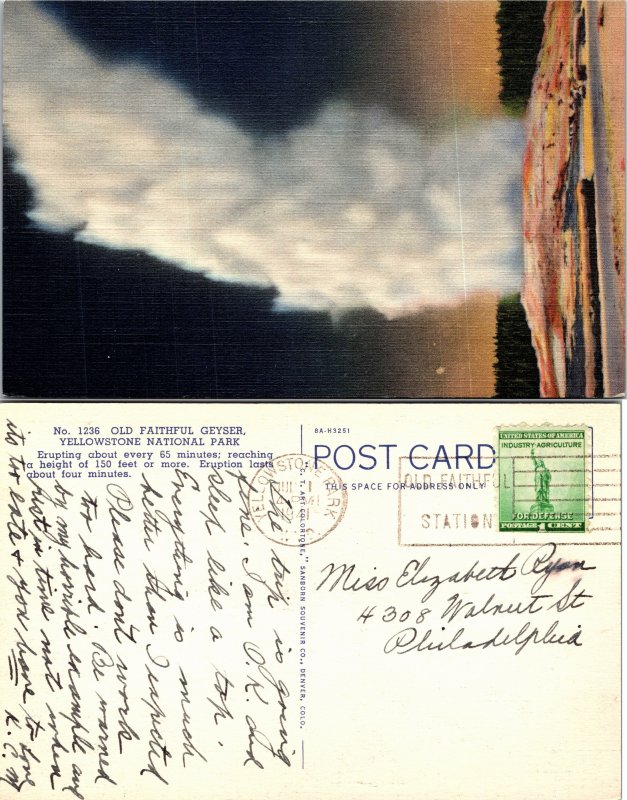 No. 1236 OLD FAITHFUL GEYSER,
YELLOWSTONE NATIONAL PARK
Erupting about every 65 minutes; reaching
a height of 150 feet or more. Eruption lasts
about four minutes.
8A-H3251
POST CARD
THIS SPACE FOR ADDRESS ONLY
YELLOWSTONE PARK
JUL 1
1941
OLD FAITHFUL
STATION
UNITED STATES OF AMERICA
INDUSTRY-AGRICULTURE
FOR DEFENSE
POSTAGE 1 CENT
C. T. ART-COLORTONE, SANBORN SOUVENIR CO., DENVER, COLO.
Miss Elizabeth Ryan
4308 Walnut St
Philadelphia
the trip is going
fine. I am O.K. and
sleep like a top.
Everything is much
better than I expected
Please don't work
to hard. Be warned
by my horrible example and
just in time not when
its to late & you have to love